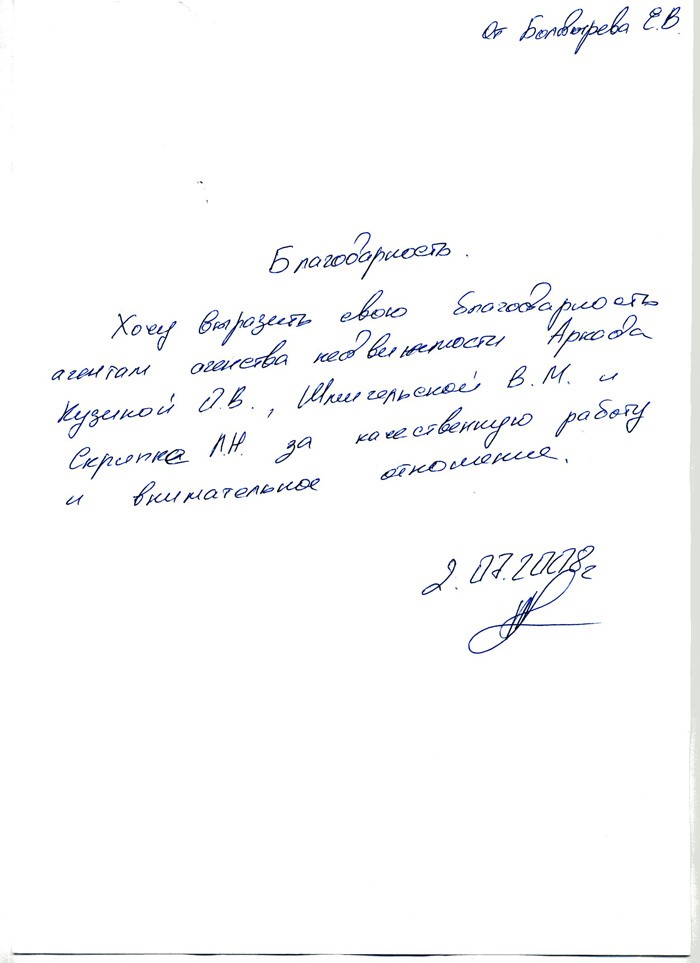 От Болдырева Е.В.
Благодарность.
Хочу выразить свою благодарность
агентам агенства недвижимости Аркада
Кузиной О.В., Шмигельской В.М. и
Скрипка Л.Н. за качественную работу
и внимательное отношение.
2.07.2008г